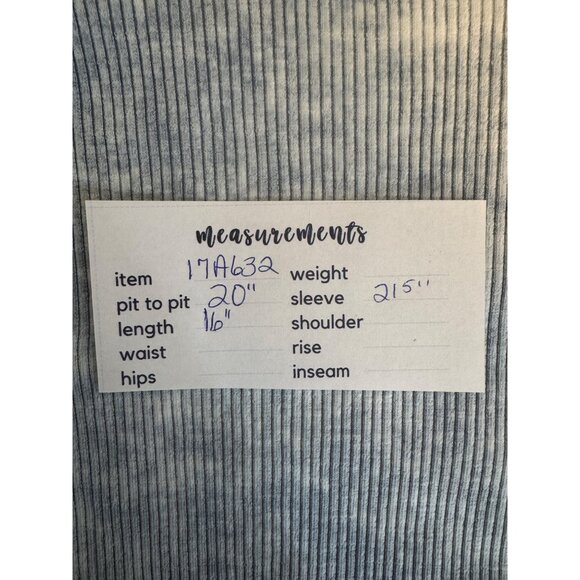 measurements
item 17A632 weight
pit to pit 20" sleeve 215"
length 16" shoulder
waist rise
hips inseam